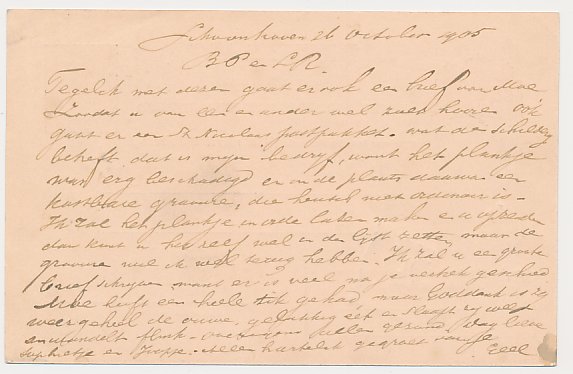 Schoonhoven 26 October 1905
B P en L R
Tegelijk met dezen gaat er ook een brief van Moe
Zoodat u van een en ander wel zult hooren ook
gaat er een St Nicolaas postpakket. wat de schilderij
betreft, dat is mijn bedrijf, want het plankje
was erg beschadigd en in de plaats daarvan een
kostbare gravure, die heusch niet ordinair is.
Ik zal het plankje in orde laten maken en u
dan kunt u het zelf wel in de lijst zetten, maar de
gravure wil ik wel terug hebben. Ik zal u een groote
brief schrijven want er is veel na je vertrek geschied
Moe heeft een heele tik gehad, maar Goddank is zij
weer geheel de oude, gelukkig eet en slaapt zij weer
en wandelt flink. overigens allen gezond. Dag lieve
en Jopje. Allen hartelijk gegroet van je